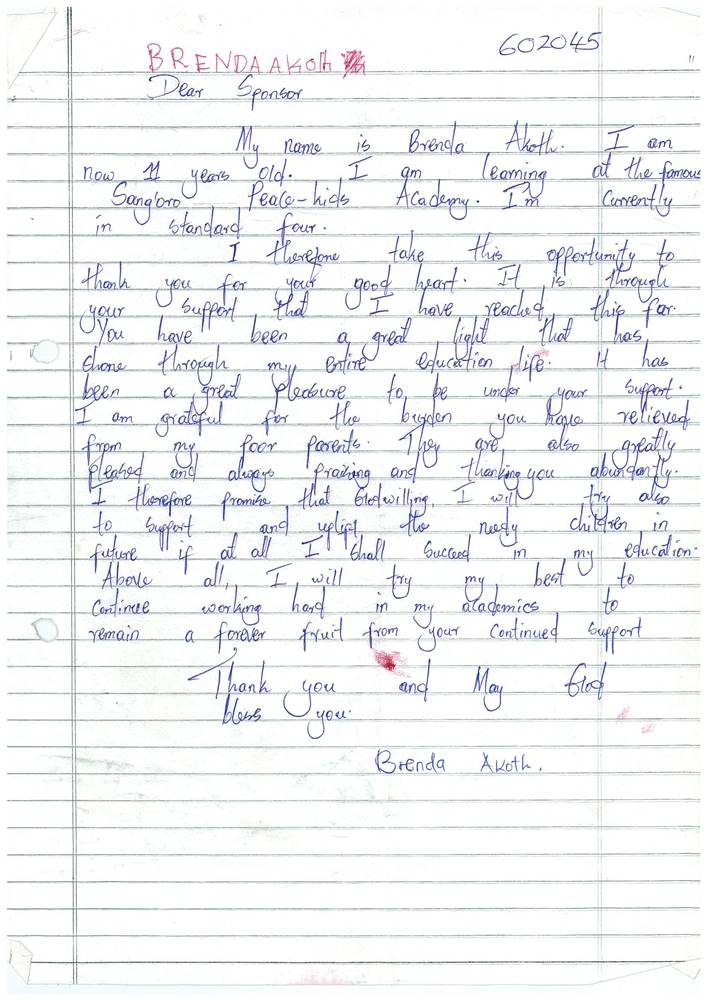 602045
BRENDA AKOTH
Dear Sponsor
My name is Brenda Akoth. I am
now 11 years old. I am learning at the famous
Sang'oro Peace-kids Academy. I'm currently
in standard four.
I therefore take this opportunity to
thank you for your good heart. It is through
your support that I have reached this far.
You have been a great light that has
shone through my entire education life. It has
been a great pleasure to be under your support.
I am grateful for the burden you have relieved
from my poor parents. They are also greatly
pleased and always praising and thanking you abundantly.
I therefore promise that Godwilling, I will try also
to support and uplift the needy children in
future if at all I shall succeed in my education.
Above all, I will try my best to
continue working hard in my academics to
remain a forever fruit from your continued support
Thank you and May God
bless you.
Brenda Akoth.